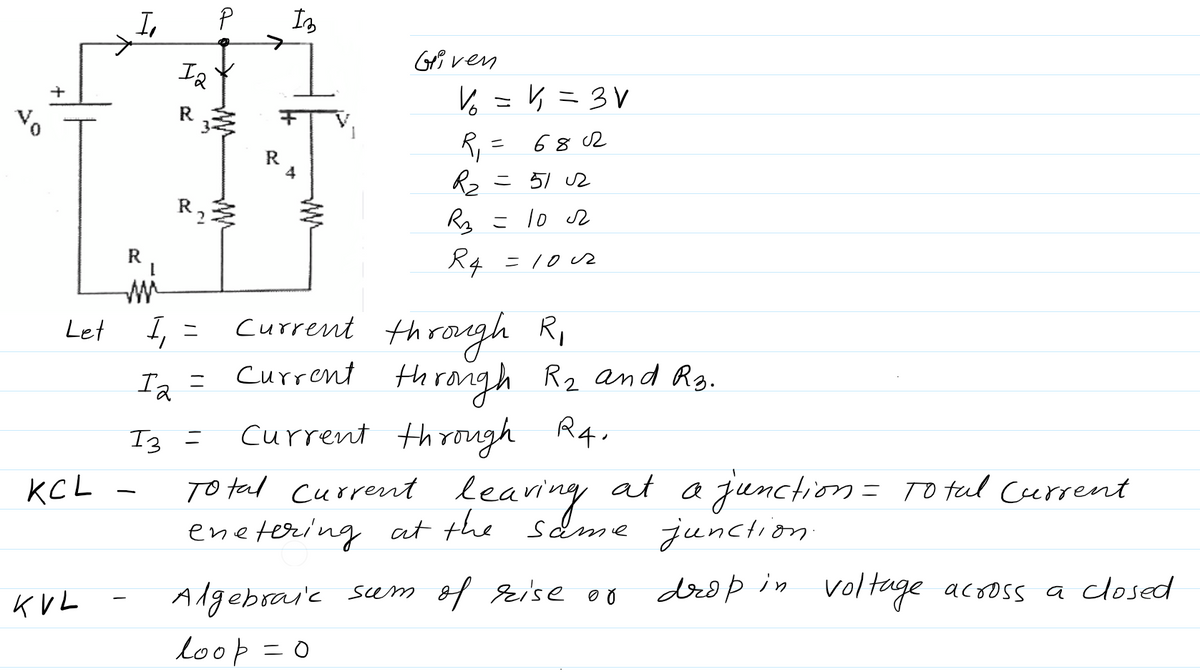 I₁ P I₃
I₂
+
V₀
R₃
+ V₁
R₄
R₂
R₁
Given
V₀ = V₁ = 3V
R₁ = 68 Ω
R₂ = 51 Ω
R₃ = 10 Ω
R₄ = 10 Ω
Let I₁ = Current through R₁
I₂ = Current through R₂ and R₃.
I₃ = Current through R₄.
KCL - Total current leaving at a junction = Total Current
enetering at the same junction.
KVL - Algebraic sum of rise or drop in voltage across a closed
loop = 0